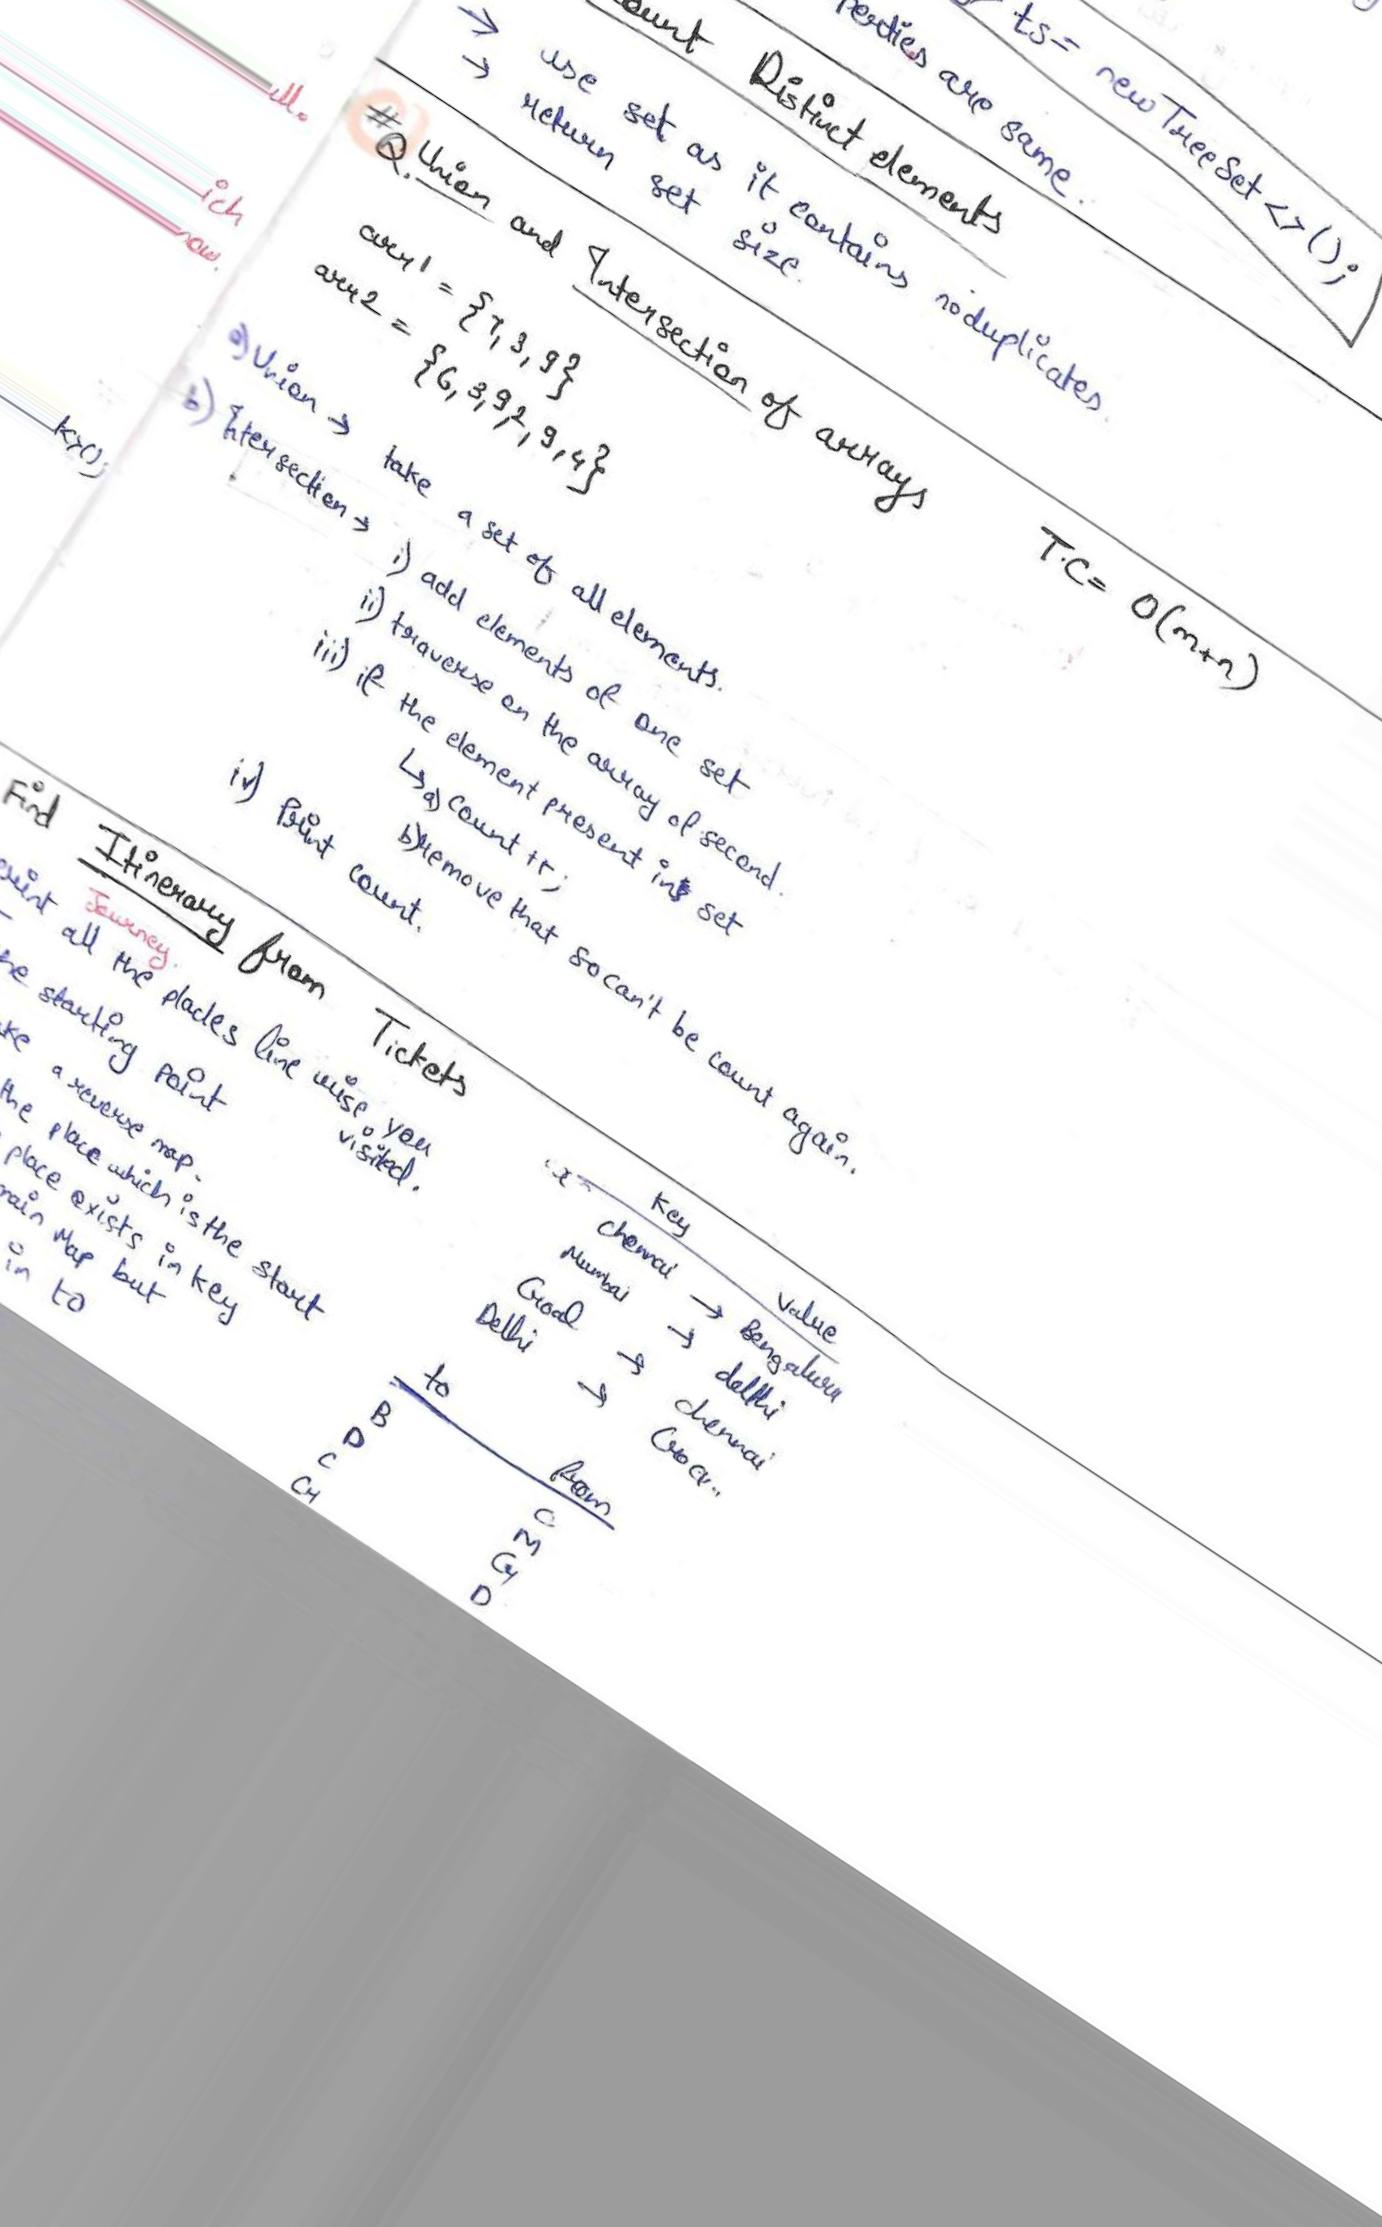 ts= new TreeSet<>();
perties are same.
Distinct elements
→ use set as it contains no duplicates.
→ return set size.
# Q. Union and Intersection of arrays T.C= O(m+n)
arr1 = {7, 3, 9}
arr2 = {6, 3, 9, 2, 9, 4}
a) Union → take a set of all elements.
b) Intersection → i) add elements of one set
ii) traverse on the array of second.
iii) if the element present in set
↳ a) count ++;
b) remove that so can't be count again.
iv) Print count.
Find Itinerary from Tickets
Journey.
all the places line wise you
visited.
starting point
a reverse map.
the place which is the start
place exists in key
Map but
in to
Key Value
chennai → Bengaluru
Mumbai → delhi
Goa → chennai
Delhi → Goa
to from
B C
D M
C G
G D
ich
now.